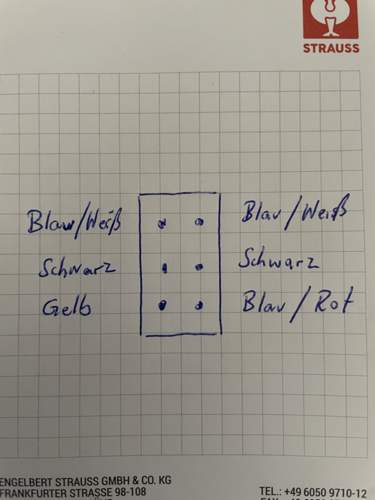 STRAUSS
Blau/Weiß Blau/Weiß
Schwarz Schwarz
Gelb Blau/Rot
ENGELBERT STRAUSS GMBH & CO. KG
FRANKFURTER STRASSE 98-108 TEL.: +49 6050 9710-12